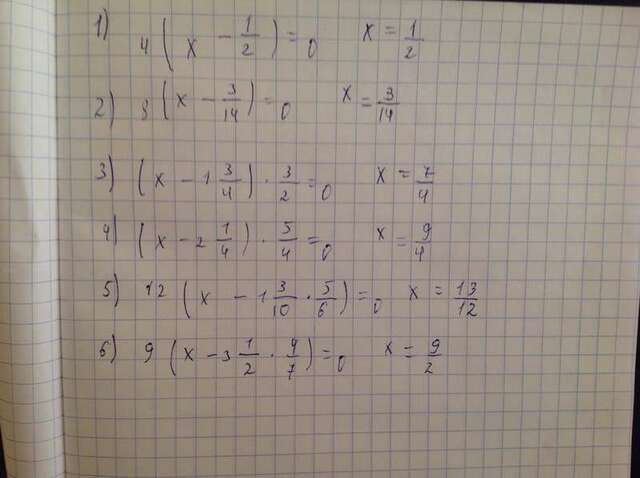 1) 4 (x - 1/2) = 0 x = 1/2
2) 8 (x - 3/14) = 0 x = 3/14
3) (x - 1 3/4) · 3/2 = 0 x = 7/4
4) (x - 2 1/4) · 5/4 = 0 x = 9/4
5) 12 (x - 1 3/10 · 5/6) = 0 x = 13/12
6) 9 (x - 3 1/2 · 9/7) = 0 x = 9/2